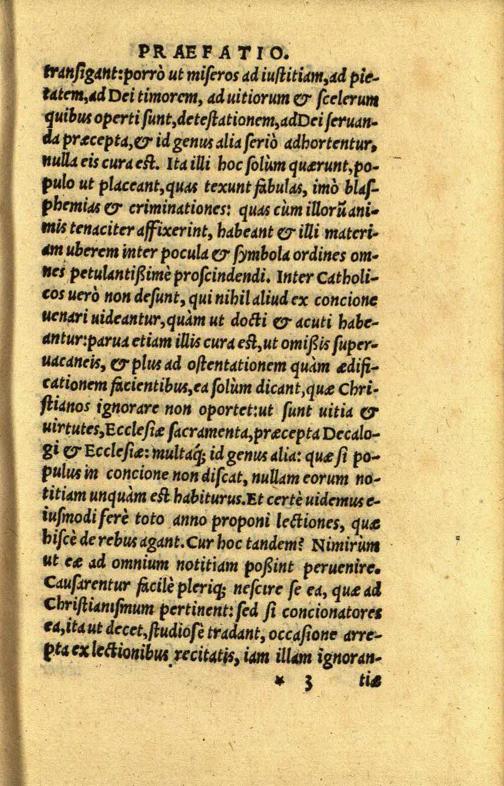 PRAEFATIO.
transigant: porrò ut miseros ad iustitiam, ad pie-
tatem, ad Dei timorem, ad uitiorum & scelerum
quibus operti sunt, detestationem, ad Dei seruan-
da præcepta, & id genus alia seriò adhortentur,
nulla eis cura est. Ita illi hoc solùm quærunt, po-
pulo ut placeant, quas texunt fabulas, imò blas-
phemias & criminationes: quas cùm illorũ ani-
mis tenaciter affixerint, habeant & illi materi-
am uberem inter pocula & symbola ordines om-
nes petulantißimè proscindendi. Inter Catholi-
cos uerò non desunt, qui nihil aliud ex concione
uenari uideantur, quàm ut docti & acuti habe-
antur: parua etiam illis cura est, ut omißis super-
uacaneis, & plus ad ostentationem quàm ædifi-
cationem facientibus, ea solùm dicant, quæ Chri-
stianos ignorare non oportet: ut sunt uitia &
uirtutes, Ecclesiæ sacramenta, præcepta Decalo-
gi & Ecclesiæ: multaq́; id genus alia: quæ si po-
pulus in concione non discat, nullam eorum no-
titiam unquàm est habiturus. Et certè uidemus e-
iusmodi ferè toto anno proponi lectiones, quæ
hisce de rebus agant. Cur hoc tandem? Nimirùm
ut eæ ad omnium notitiam poßint peruenire.
Causarentur facilè pleriq; nescire se ea, quæ ad
Christianismum pertinent: sed si concionatores
ea, ita ut decet, studiosè tradant, occasione arre-
pta ex lectionibus recitatis, iam illam ignoran-
* 3 tiæ